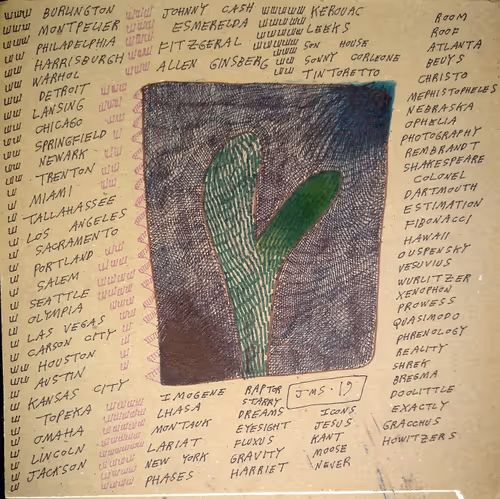 BURLINGTON
MONTPELIER
PHILADELPHIA
HARRISBURGH
WARHOL
DETROIT
LANSING
CHICAGO
SPRINGFIELD
NEWARK
TRENTON
MIAMI
TALLAHASSEE
LOS ANGELES
SACRAMENTO
PORTLAND
SALEM
SEATTLE
OLYMPIA
LAS VEGAS
CARSON CITY
HOUSTON
AUSTIN
KANSAS CITY
TOPEKA
OMAHA
LINCOLN
JACKSON
JOHNNY CASH
ESMERELDA
FITZGERAL
ALLEN GINSBERG
KEROUAC
LEEKS
SON HOUSE
SONNY CORLEONE
TINTORETTO
ROOM
ROOF
ATLANTA
BEUYS
CHRISTO
MEPHISTOPHELES
NEBRASKA
OPHELIA
PHOTOGRAPHY
REMBRANDT
SHAKESPEARE
COLONEL
DARTMOUTH
ESTIMATION
FIBONACCI
HAWAII
OUSPENSKY
VESUVIUS
WURLITZER
XENOPHON
PROWESS
QUASIMODO
PHRENOLOGY
REALITY
SHREK
BREGMA
DOOLITTLE
EXACTLY
GRACCHUS
HOWITZERS
IMOGENE
LHASA
MONTAUK
LARIAT
NEW YORK
PHAGES
RAPTOR
STARRY
DREAMS
EYESIGHT
FLUXUS
GRAVITY
HARRIET
JMS · 19
ICONS
JESUS
KANT
MOOSE
NEVER